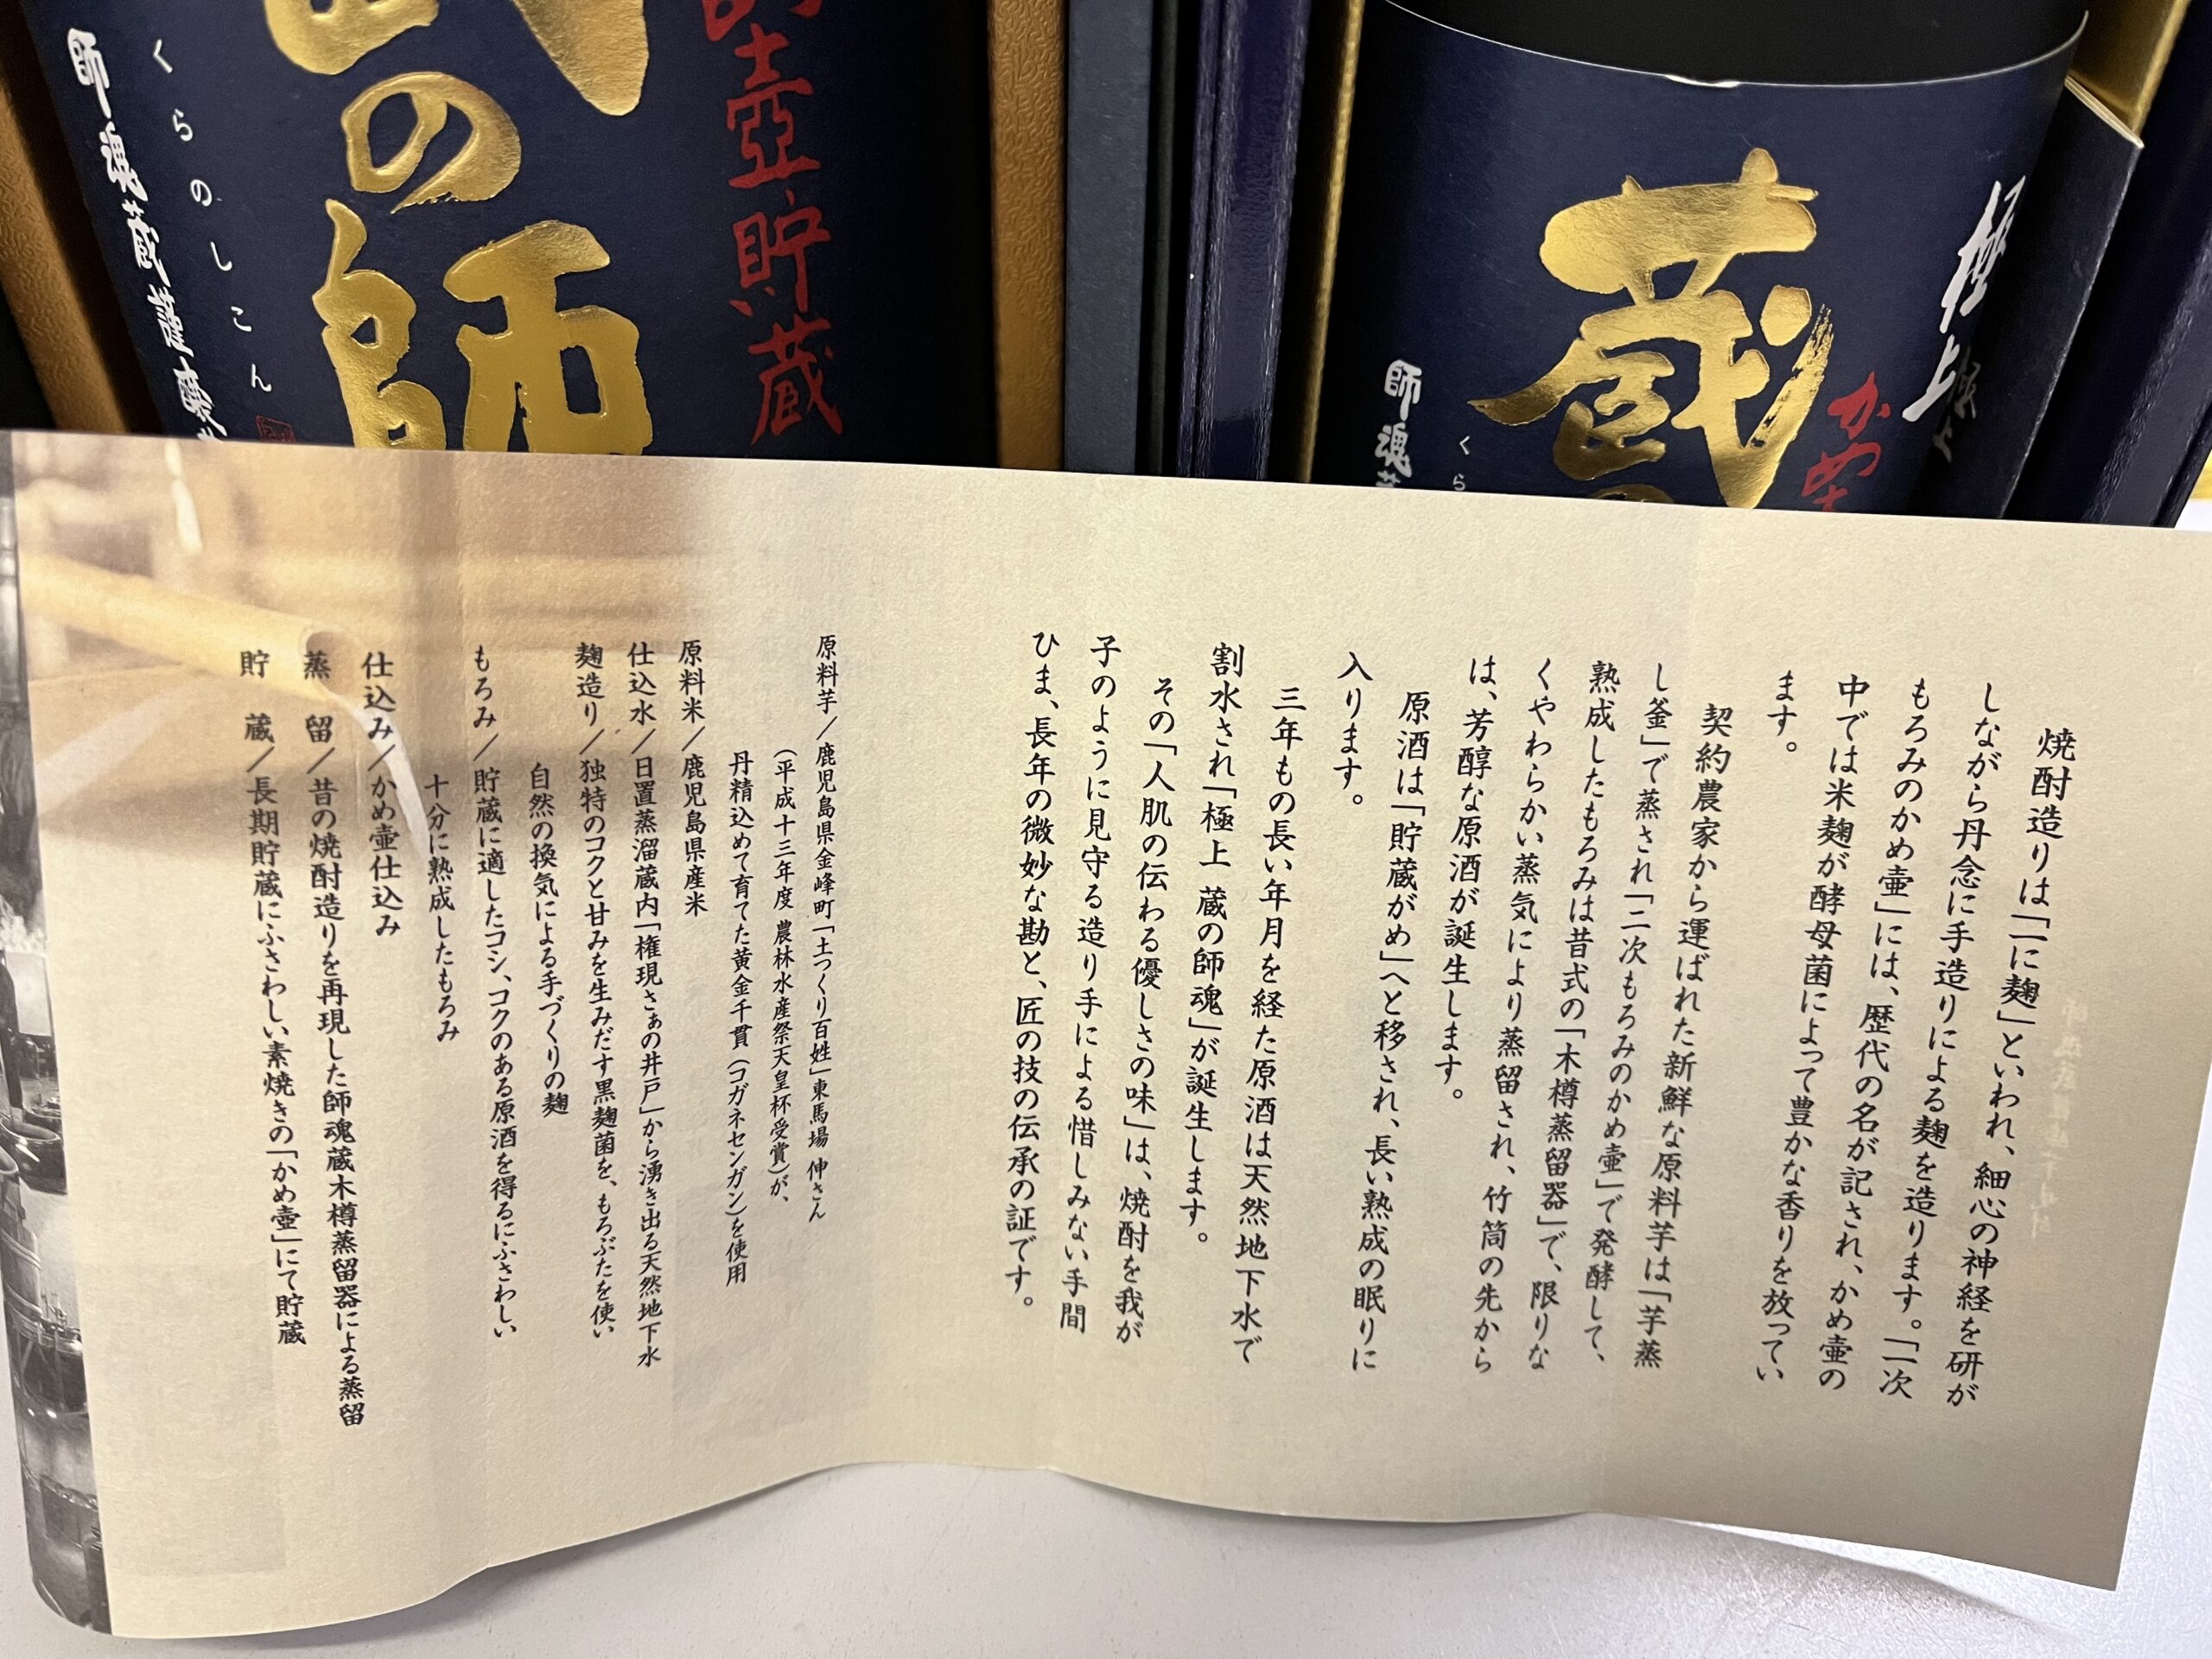 の師
壺貯蔵
くらのしこん
師魂蔵謹醸
極上
蔵
かめ
師魂
くら
焼酎造りは「一に麹」といわれ、細心の神経を研が
しながら丹念に手造りによる麹を造ります。「一次
もろみのかめ壷」には、歴代の名が記され、かめ壷の
中では米麹が酵母菌によって豊かな香りを放ってい
ます。
契約農家から運ばれた新鮮な原料芋は「芋蒸
し釜」で蒸され「二次もろみのかめ壷」で発酵して、
熟成したもろみは昔式の「木樽蒸留器」で、限りな
くやわらかい蒸気により蒸留され、竹筒の先から
は、芳醇な原酒が誕生します。
原酒は「貯蔵がめ」へと移され、長い熟成の眠りに
入ります。
三年もの長い年月を経た原酒は天然地下水で
割水され「極上 蔵の師魂」が誕生します。
その「人肌の伝わる優しさの味」は、焼酎を我が
子のように見守る造り手による惜しみない手間
ひま、長年の微妙な勘と、匠の技の伝承の証です。
原料芋／鹿児島県金峰町「土つくり百姓」東馬場 伸さん
（平成十三年度 農林水産祭天皇杯受賞）が、
丹精込めて育てた黄金千貫（コガネセンガン）を使用
原料米／鹿児島県産米
仕込水／日置蒸溜蔵内「権現さぁの井戸」から湧き出る天然地下水
麹造り／独特のコクと甘みを生みだす黒麹菌を、もろぶたを使い
自然の換気による手づくりの麹
もろみ／貯蔵に適したコシ、コクのある原酒を得るにふさわしい
十分に熟成したもろみ
仕込み／かめ壷仕込み
蒸 留／昔の焼酎造りを再現した師魂蔵木樽蒸留器による蒸留
貯 蔵／長期貯蔵にふさわしい素焼きの「かめ壷」にて貯蔵